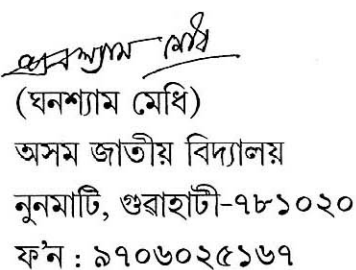 ঘনশ্যাম মেধি
(ঘনশ্যাম মেধি)
অসম জাতীয় বিদ্যালয়
নুনমাটি, গুৱাহাটী-৭৮১০২০
ফ'ন : ৯৭০৬০২৫১৬৭